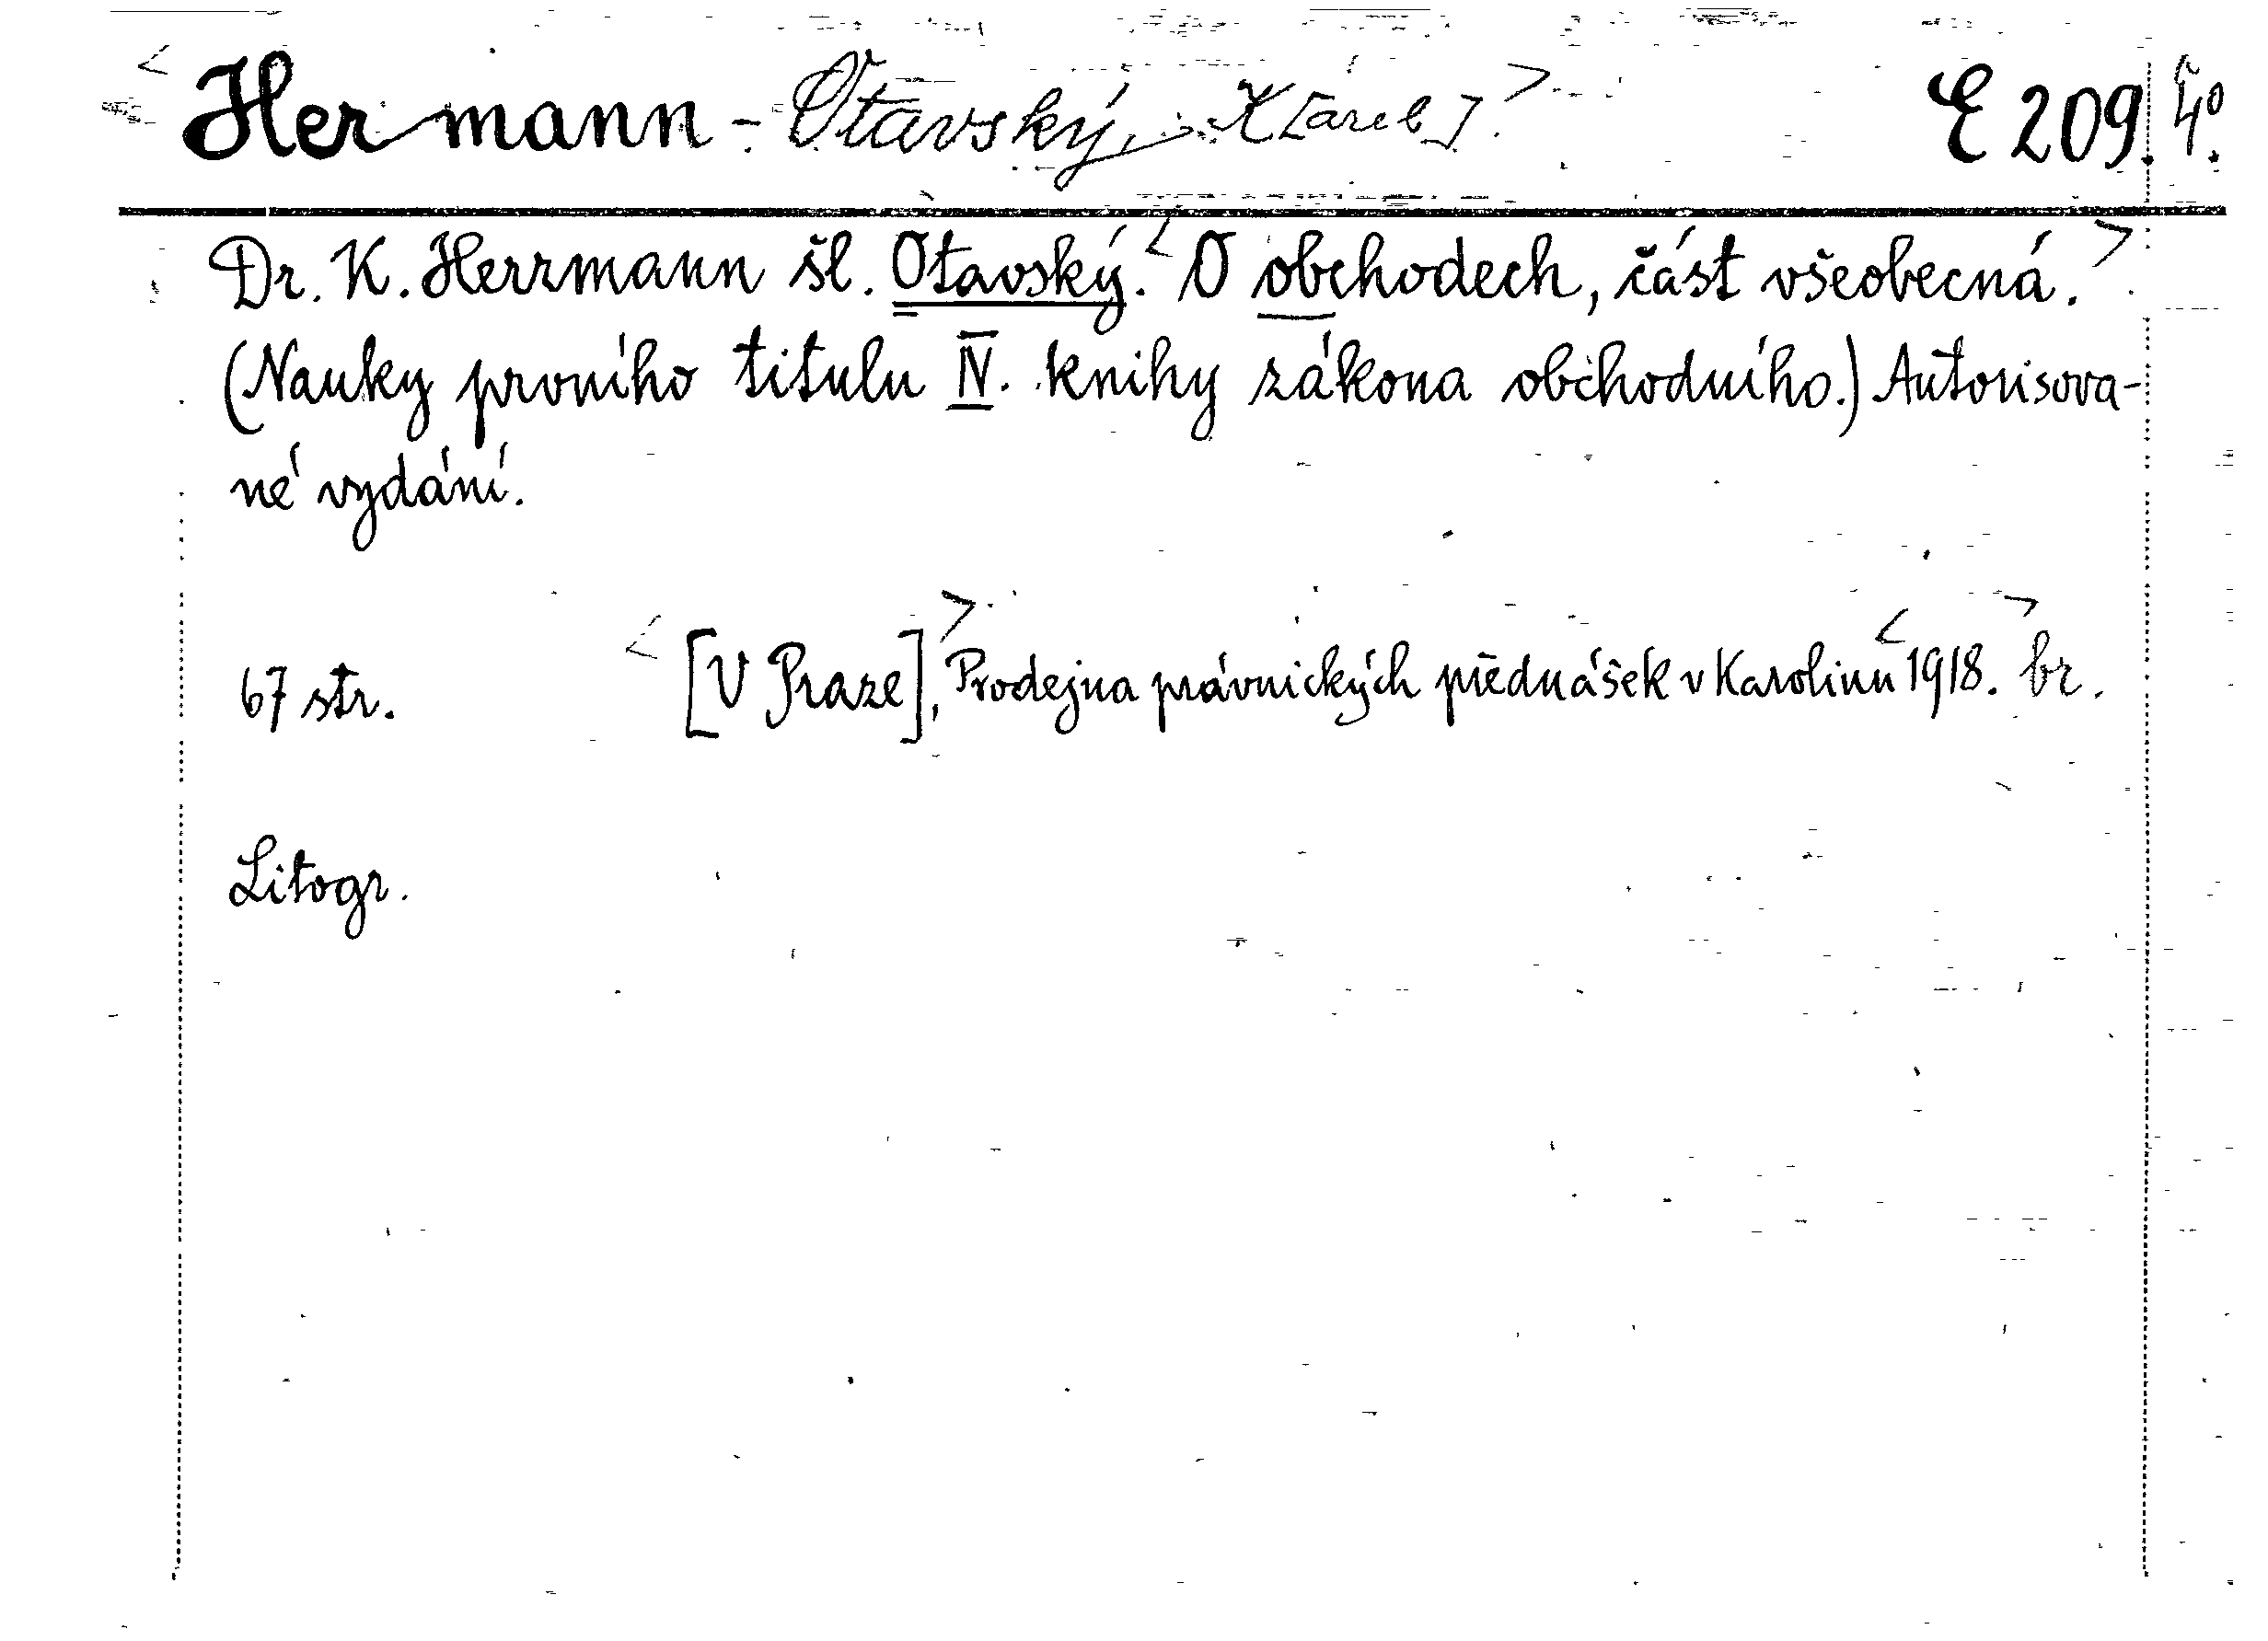 <Hermann-Otavský, K[arel].> E 209. 4º.
Dr. K. Herrmann šl. Otavský. <O obchodech, část všeobecná.>
(Nauky prvního titulu IV. knihy zákona obchodního.) Autorisova-
né vydání.
67 str. <[V Praze],> Prodejna právnických přednášek v Karolinu <1918.> br.
Litogr.